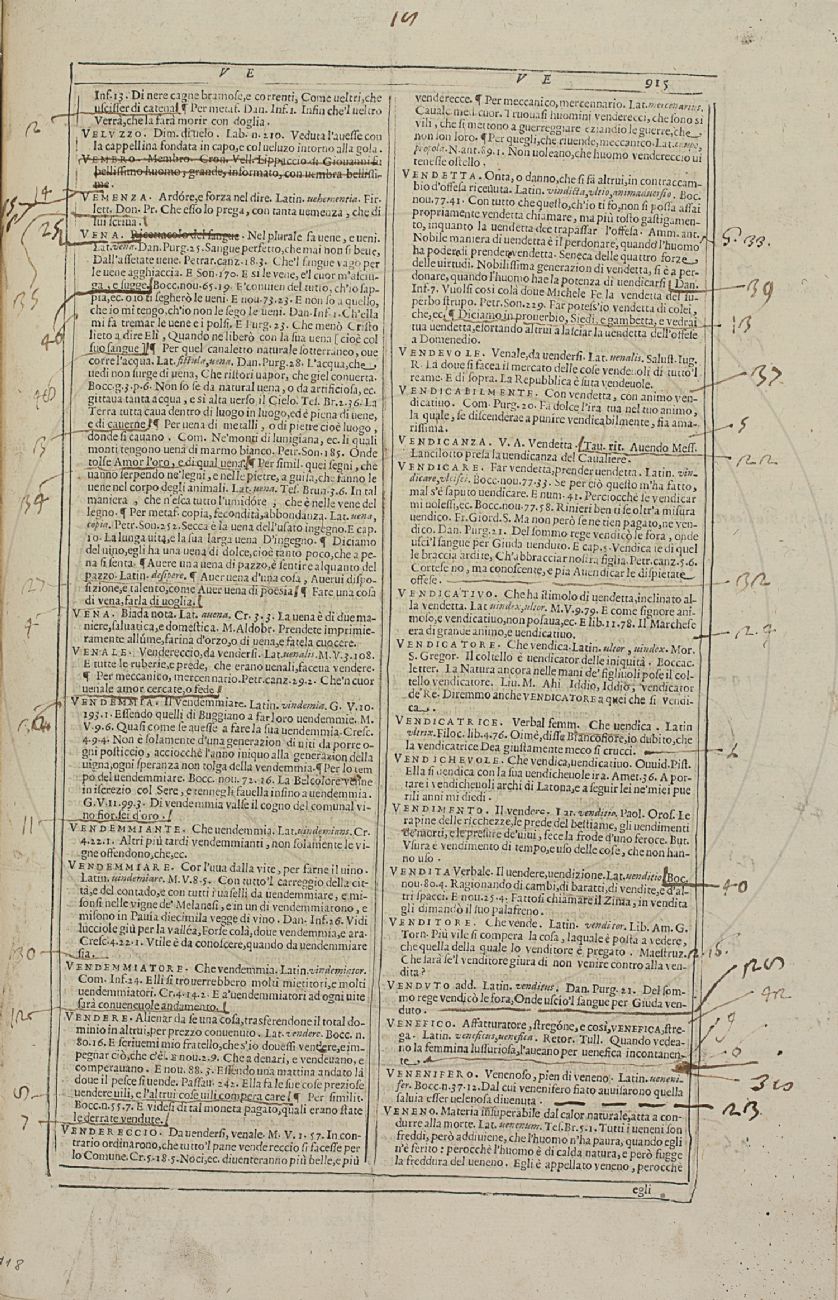 V E
V E 915
Inf. 13. Di nere cagne bramose, e correnti, Come ueltri, che
uscisser di catena ¶ Per metaf. Dan. Inf. 1. Infin che'l ueltro
Verrà, che la farà morir con doglia.
VELVZZO. Dim. di uelo. Lab. n. 210. Veduta l'auesse con
la cappellina fondata in capo, e col ueluzo intorno alla gola.
VEMBRO. Membro. Cron. Vell. Lippaccio di Giouanni fu
bellissimo huomo, grande, informato, con uembra bellissi-
me.
VEMENZA. Ardóre, e forza nel dire. Latin. uehementia. Fir.
lett. Don. Pr. Che esso lo prega, con tanta uemenza, che di
lui scriua.
VENA. Ricettacolo del sangue. Nel plurale fa uene, e ueni.
Lat. vena. Dan. Purg. 25. Sangue perfetto, che mai non si beue,
Dall'assetate uene. Petrar. canz. 18. 3. Che'l sangue vago per
le uene agghiaccia. E Son. 170. E si le vene, e'l cuor m'asciu-
ga, e sugge. Bocc. nou. 65. 19. E' conuien del tutto, ch'io sap-
pia, ec. o io ti segherò le ueni. E nou. 73. 23. E non so a quello,
che io mi tengo, ch'io non le sego le ueni. Dan. Inf. 1. Ch'ella
mi fa tremar le uene e i polsi. E Purg. 23. Che menò Cristo
lieto a dire Eli, Quando ne liberò con la sua uena [cioè col
suo sangue] ¶ Per quel canaletto naturale sotterraneo, oue
corre l'acqua. Lat. fistula, uena. Dan. Purg. 28. L'acqua, che
uedi non surge di uena, Che ristori vapor, che giel conuerta.
Bocc. g. 3. p. 6. Non so se da natural uena, o da artificiosa, ec.
gittaua tanta acqua, e sì alta uerso il Cielo. Tes. Br. 2. 36. La
Terra tutta caua dentro di luogo in luogo, ed è piena di uene,
e di cauerne ¶ Per uena di metalli, o di pietre cioè luogo,
donde si cauano. Com. Ne' monti di lunigiana, ec. li quali
monti tengono uena di marmo bianco. Petr. Son. 185. Onde
tolse Amor l'oro, e di qual uena ¶ Per simil. quei segni, che
uanno serpendo ne' legni, e nelle pietre, a guisa, che fanno le
uene nel corpo degli animali. Lat. uena. Tes. Brun. 3. 6. In tal
maniera, che n'esca tutto l'umidóre, che è nelle vene del
legno. ¶ Per metaf. copia, fecondità, abbondanza. Lat. uena,
copia. Petr. Son. 252. Secca è la uena dell'usato ingegno. E cap.
10. La lunga uita, e la sua larga uena D'ingegno. ¶ Diciamo
del uino, egli ha una uena di dolce, cioè tanto poco, che a pe-
na si senta. ¶ Auere una uena di pazzo, è sentire alquanto del
pazzo. Latin. desipere. ¶ Auer uena d'una cosa, Auerui dispo-
sizione, e talento, come Auer uena di poesia ¶ Fare una cosa
di vena, farla di uoglia.
VENA. Biada nota. Lat. auena. Cr. 3. 3. La uena è di due ma-
niere, saluatica, e domestica. M. Aldobr. Prendete imprimie-
ramente allúme, farina d'orzo, o di uena, e fatela cuocere.
VENALE. Vendereccio, da vendersi. Lat. uenalis. M. V. 3. 108.
E tutte le ruberie, e prede, che erano uenali, faceua vendere.
¶ Per meccanico, mercennario. Petr. canz. 29. 2. Che'n cuor
uenale amor cercate, o fede
VENDEMMIA. Il Vendemmiare. Latin. vindemia. G. V. 10.
193. 1. Essendo quelli di Buggiano a far loro uendemmie. M.
V. 9. 6. Quasi come se auesse a fare la sua uendemmia. Cresc.
4. 9. 4. Non è solamente d'una generazion di uiti da porre o-
gni posticcio, acciocchè l'anno iniquo alla generazion della
uigna, ogni speranza non tolga della vendemmia. ¶ Per lo tem
po del uendemmiare. Bocc. nou. 72. 16. La Belcolore venne
in iscrezio col Sere, e tennegli fauella insino a uendemmia.
G. V. 11. 99. 3. Di vendemmia valse il cogno del comunal vi-
no fior. sei d'oro.
VENDEMMIANTE. Che uendemmia. Lat. uindemians. Cr.
4. 22. 1. Altri più tardi vendemmianti, non solamente le vi-
gne offendono, che, ec.
VENDEMMIARE. Cor l'uua dalla vite, per farne il uino.
Latin. uindemiare. M. V. 8. 5. Con tutto'l carreggio della cit-
tà, e del contado, e con tutti i uaselli da uendemmiare, e mi-
sonsi nelle vigne de' Melanesi, e in un dì vendemmiarono, e
misono in Pauia diecimila vegge di vino. Dan. Inf. 26. Vidi
lucciole giù per la valléa, Forse colà, doue vendemmia, e ara.
Cresc. 4. 22. 1. Vtile è da conoscere, quando da uendemmiare
sia.
VENDEMMIATORE. Che vendemmia. Latin. vindemiator.
Com. Inf. 24. Elli si trouerrebbero molti mietitori, e molti
uendemmiatori. Cr. 4. 14. 2. E a' uendemmiatori ad ogni uite
sarà conueneuole andamento.
VENDERE. Alienar da se una cosa, trasferendone il total do-
minio in altrui, per prezzo conuenuto. Lat. vendere. Bocc. n.
80. 16. E scriuemi mio fratello, che s'io douessi vendere, e im-
pegnar ciò, che c'è. E nou. 2. 9. Che a denari, e vendeuano, e
comperauano. E nou. 88. 3. Essendo una mattina andato là
doue il pesce si uende. Passau. 242. Ella fa le sue cose preziose
uendere uili, e l'altrui cose uili compera care ¶ Per similit.
Bocc. n. 55. 7. E videsi di tal moneta pagato, quali erano state
le derrate vendute.
VENDERECCIO. Da uendersi, venale. M. V. 1. 57. In con-
trario ordinarono, che tutto'l pane vendereccio si facesse per
lo Comune. Cr. 5. 18. 5. Noci, ec. diuenteranno più belle, e più
venderecce. ¶ Per meccanico, mercennario. Lat. mercenarius.
Caualc. med. cuor. Truouasi huomini venderecci, che sono sì
vili, che si mettono a guerreggiare eziandio le guerre, che
non son loro. ¶ Per quegli, che riuende, meccanico. Lat.
N. ant. 89. 1. Non uoleano, che huomo vendereccio ui
tenesse ostello.
VENDETTA. Onta, o danno, che si fa altrui, in contraccam-
bio d'offesa riceuuta. Latin. vindicta, vltio, animaduersio. Boc.
nou. 77. 41. Con tutto che questo, ch'io ti fo, non si possa assai
propriamente vendetta chiamare, ma più tosto gastigamen-
to, inquanto la uendetta dee trapassar l'offesa. Amm. ant.
Nobile maniera di uendetta è il perdonare, quando l'huomo
ha podere di prender vendetta. Seneca delle quattro forze
delle uirtudi. Nobilissima generazion di vendetta, si è a per-
donare, quando l'huomo hae la potenza di uendicarsi Dan.
Inf. 7. Vuolsi così colà doue Michele Fe la vendetta del su-
perbo strupo. Petr. Son. 229. Far potess'io vendetta di colei,
che, ec. ¶ Diciamo in prouerbio, Siedi, e gambetta, e vedrai
tua uendetta, esortando altrui a lasciar la uendetta dell'offese
a Domenedio.
VENDEVOLE. Venale, da uendersi. Lat. uenalis. Salust. Iug.
R. La doue si facea il mercato delle cose vendeuoli di tutto'l
reame. E di sopra. La Repubblica è suta vendeuole.
VENDICABILMENTE. Con vendetta, con animo ven-
dicatiuo. Com. Purg. 20. Fa dolce l'ira tua nel tuo animo,
la quale, se discendesse a punire vendicabilmente, sia ama-
rissima.
VENDICANZA. V. A. Vendetta. Tau. rit. Auendo Mess.
Lancilotto presa la uendicanza del Caualiere.
VENDICARE. Far vendetta, prender uendetta. Latin. vin-
dicare, vlcisci. Bocc. nou. 77. 33. Se per ciò questo m'ha fatto,
mal s'è saputo uendicare. E num. 41. Perciocchè se vendicar
mi uolessi, ec. Bocc. nou. 77. 58. Rinieri ben ti se oltr'a misura
uendico. Fr. Giord. S. Ma non però se ne tien pagato, ne ven-
dico. Dan. Purg. 21. Del sommo rege vendicò le fora, onde
uscì'l sangue per Giuda uenduto. E cap. 5. Vendica te di quel
le braccia ardite, Ch'abbracciar nostra figlia. Petr. canz. 5. 6.
Cortese no, ma conoscente, e pia A uendicar le dispietate
offese.
VENDICATIVO. Che ha istimolo di uendetta, inclinato al-
la vendetta. Lat. uindex, ultor. M. V. 9. 79. E come signore ani-
moso, e vendicatiuo, non posaua, ec. E lib. 11. 78. Il Marchese
era di grande animo, e uendicatiuo.
VENDICATORE. Che vendica. Latin. ultor, uindex. Mor.
S. Gregor. Il coltello è uendicator delle iniquità. Boccac.
letter. La Natura ancora nelle mani de' figliuoli pose il col-
tello vendicatore. Liu. M. Ahi Iddio, Iddio, vendicator
de' Re. Diremmo anche VENDICATORE a quei che si vendi-
ca.
VENDICATRICE. Verbal femm. Che uendica. Latin
vltrix. Filoc. lib. 4. 76. Oimè, disse Biancofiore, io dubito, che
la vendicatrice Dea giustamente meco si crucci.
VENDICHEVOLE. Che vendica, uendicatiuo. Ouuid. Pist.
Ella si vendica con la sua uendicheuole ira. Amet. 36. A por-
tare i vendicheuoli archi di Latona, e a seguir lei ne' miei pue
rili anni mi diedi.
VENDIMENTO. Il vendere. Lat. venditio. Paol. Oros. Le
rapine delle ricchezze, le prede del bestiame, gli uendimenti
de' morti, e le presure de' uiui, fece la frode d'uno feroce. But.
Vsura è vendimento di tempo, e uso delle cose, che non han-
no uso.
VENDITA Verbale. Il uendere, uendizione. Lat. uenditio Boc.
nou. 80. 4. Ragionando di cambi, di baratti, di vendite, e d'al-
tri spacci. E nou. 25. 4. Fattosi chiamare il Zima, in vendita
gli dimandò il suo palafreno.
VENDITORE. Che vende. Latin. venditor. Lib. Am. G.
Torn. Più vile si compera la cosa, la quale è posta a vedere,
che quella della quale lo venditore è pregato. Maestruz. 2. 15.
Che sarà se'l venditore giura di non venire contro alla ven-
dita?
VENDVTO add. Latin. venditus. Dan. Purg. 21. Del som-
mo rege vendicò le fora, Onde uscio'l sangue per Giuda ven-
duto.
VENEFICO. Affatturatore, stregóne, e così, VENEFICA, stre-
ga. Latin. veneficus, uenefica. Retor. Tull. Quando vedea-
no la femmina lussuriosa, l'aucano per uenefica incontanen-
te.
VENENIFERO. Venenoso, pien di veneno. Latin. ueneni-
fer. Bocc. n. 37. 12. Dal cui venenifero fiato auuisarono quella
saluia esser uelenosa diuenuta.
VENENO. Materia insuperabile dal calor naturale, atta a con-
durre alla morte. Lat. uenenum. Tes. Br. 5. 1. Tutti i ueneni son
freddi, però addiuiene, che l'huomo n'ha paura, quando egli
n'è ferito: perocchè l'huomo è di calda natura, e però fugge
la freddura del ueneno. Egli è appellato veneno, perocchè
egli